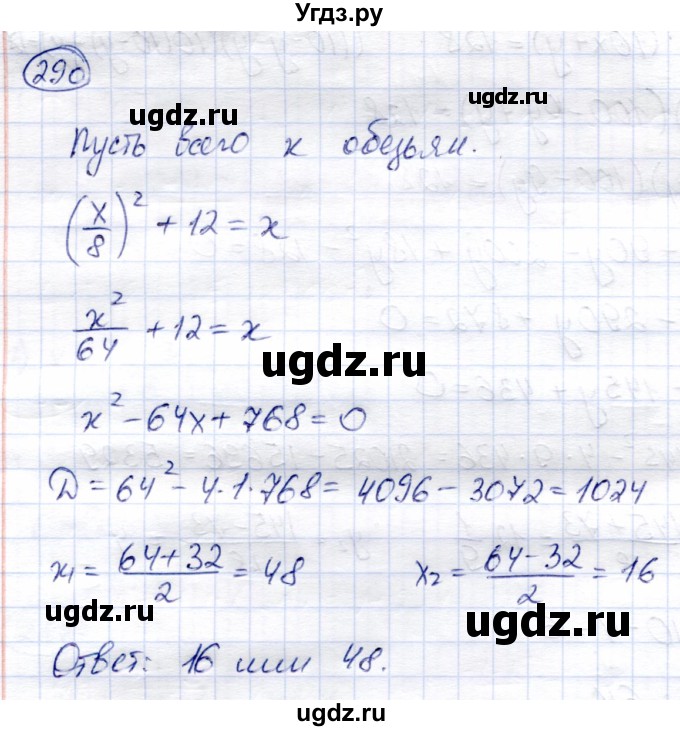 Угдз.ру
290
ugdz.ru ugdz.ru
Пусть всего x обезьян.
(x/8)² + 12 = x
ugdz.ru
x²/64 + 12 = x
ugdz.ru
x² - 64x + 768 = 0
D = 64² - 4·1·768 = 4096 - 3072 = 1024
x₁ = (64+32)/2 = 48 x₂ = (64-32)/2 = 16
ugdz.ru ugdz.ru
Ответ: 16 или 48.
ugdz.ru